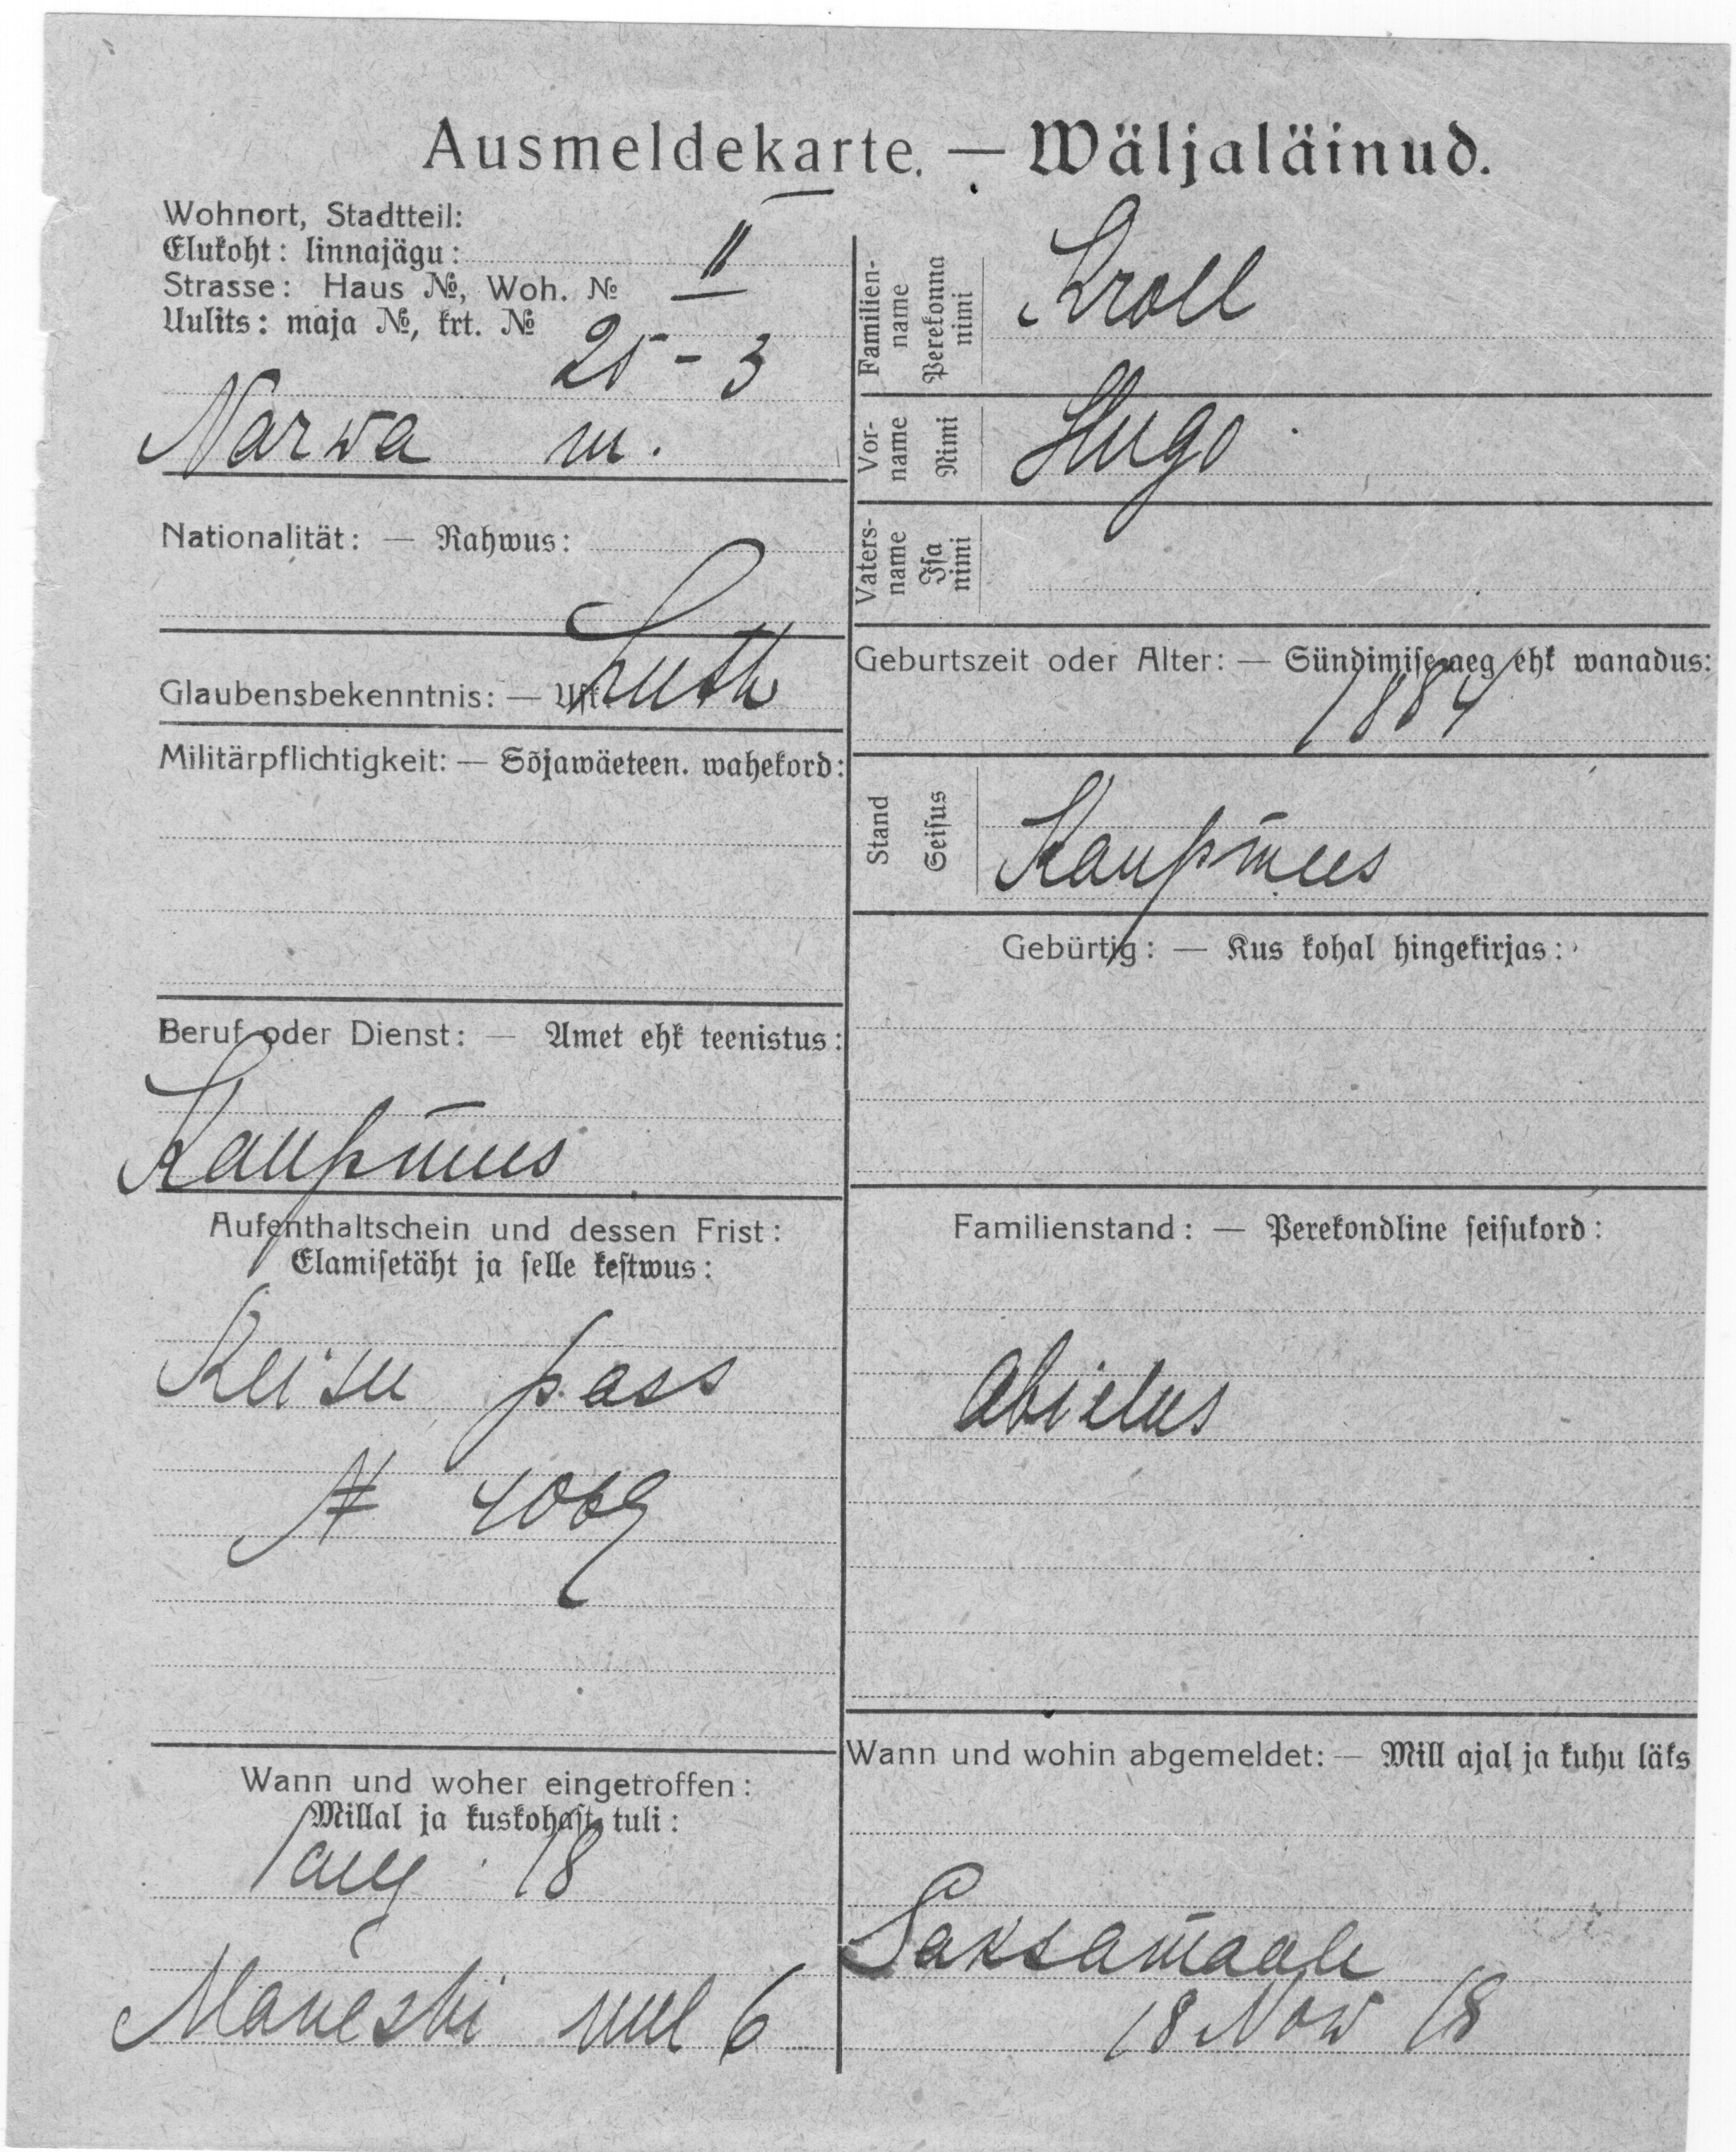 Ausmeldekarte. — Wäljaläinud.
Wohnort, Stadtteil:
Elukoht: linnajägu: II
Strasse: Haus №, Woh. №
Uulits: maja №, krt. №
25 - 3
Narwa m.
Nationalität: — Rahwus:
Glaubensbekenntnis: — Usk Luth
Militärpflichtigkeit: — Sõjawäeteen. wahekord:
Beruf oder Dienst: — Amet ehk teenistus:
Kaupmees
Aufenthaltschein und dessen Frist:
Elamisetäht ja selle kestwus:
Reisu pass
№ 4069
Wann und woher eingetroffen:
Millal ja kuskohast tuli:
1 aug. 18
uul 6
Familien-
name
Perekonna
nimi
Kroll
Vor-
name
Nimi
Hugo
Vaters-
name
Isa
nimi
Geburtszeit oder Alter: — Sündimise aeg ehk wanadus:
1884
Stand
Seisus
Kaupmees
Gebürtig: — Kus kohal hingekirjas:
Familienstand: — Perekondline seisukord:
Abielus
Wann und wohin abgemeldet: — Mill ajal ja kuhu läks
Saksamaale
18 Now 18